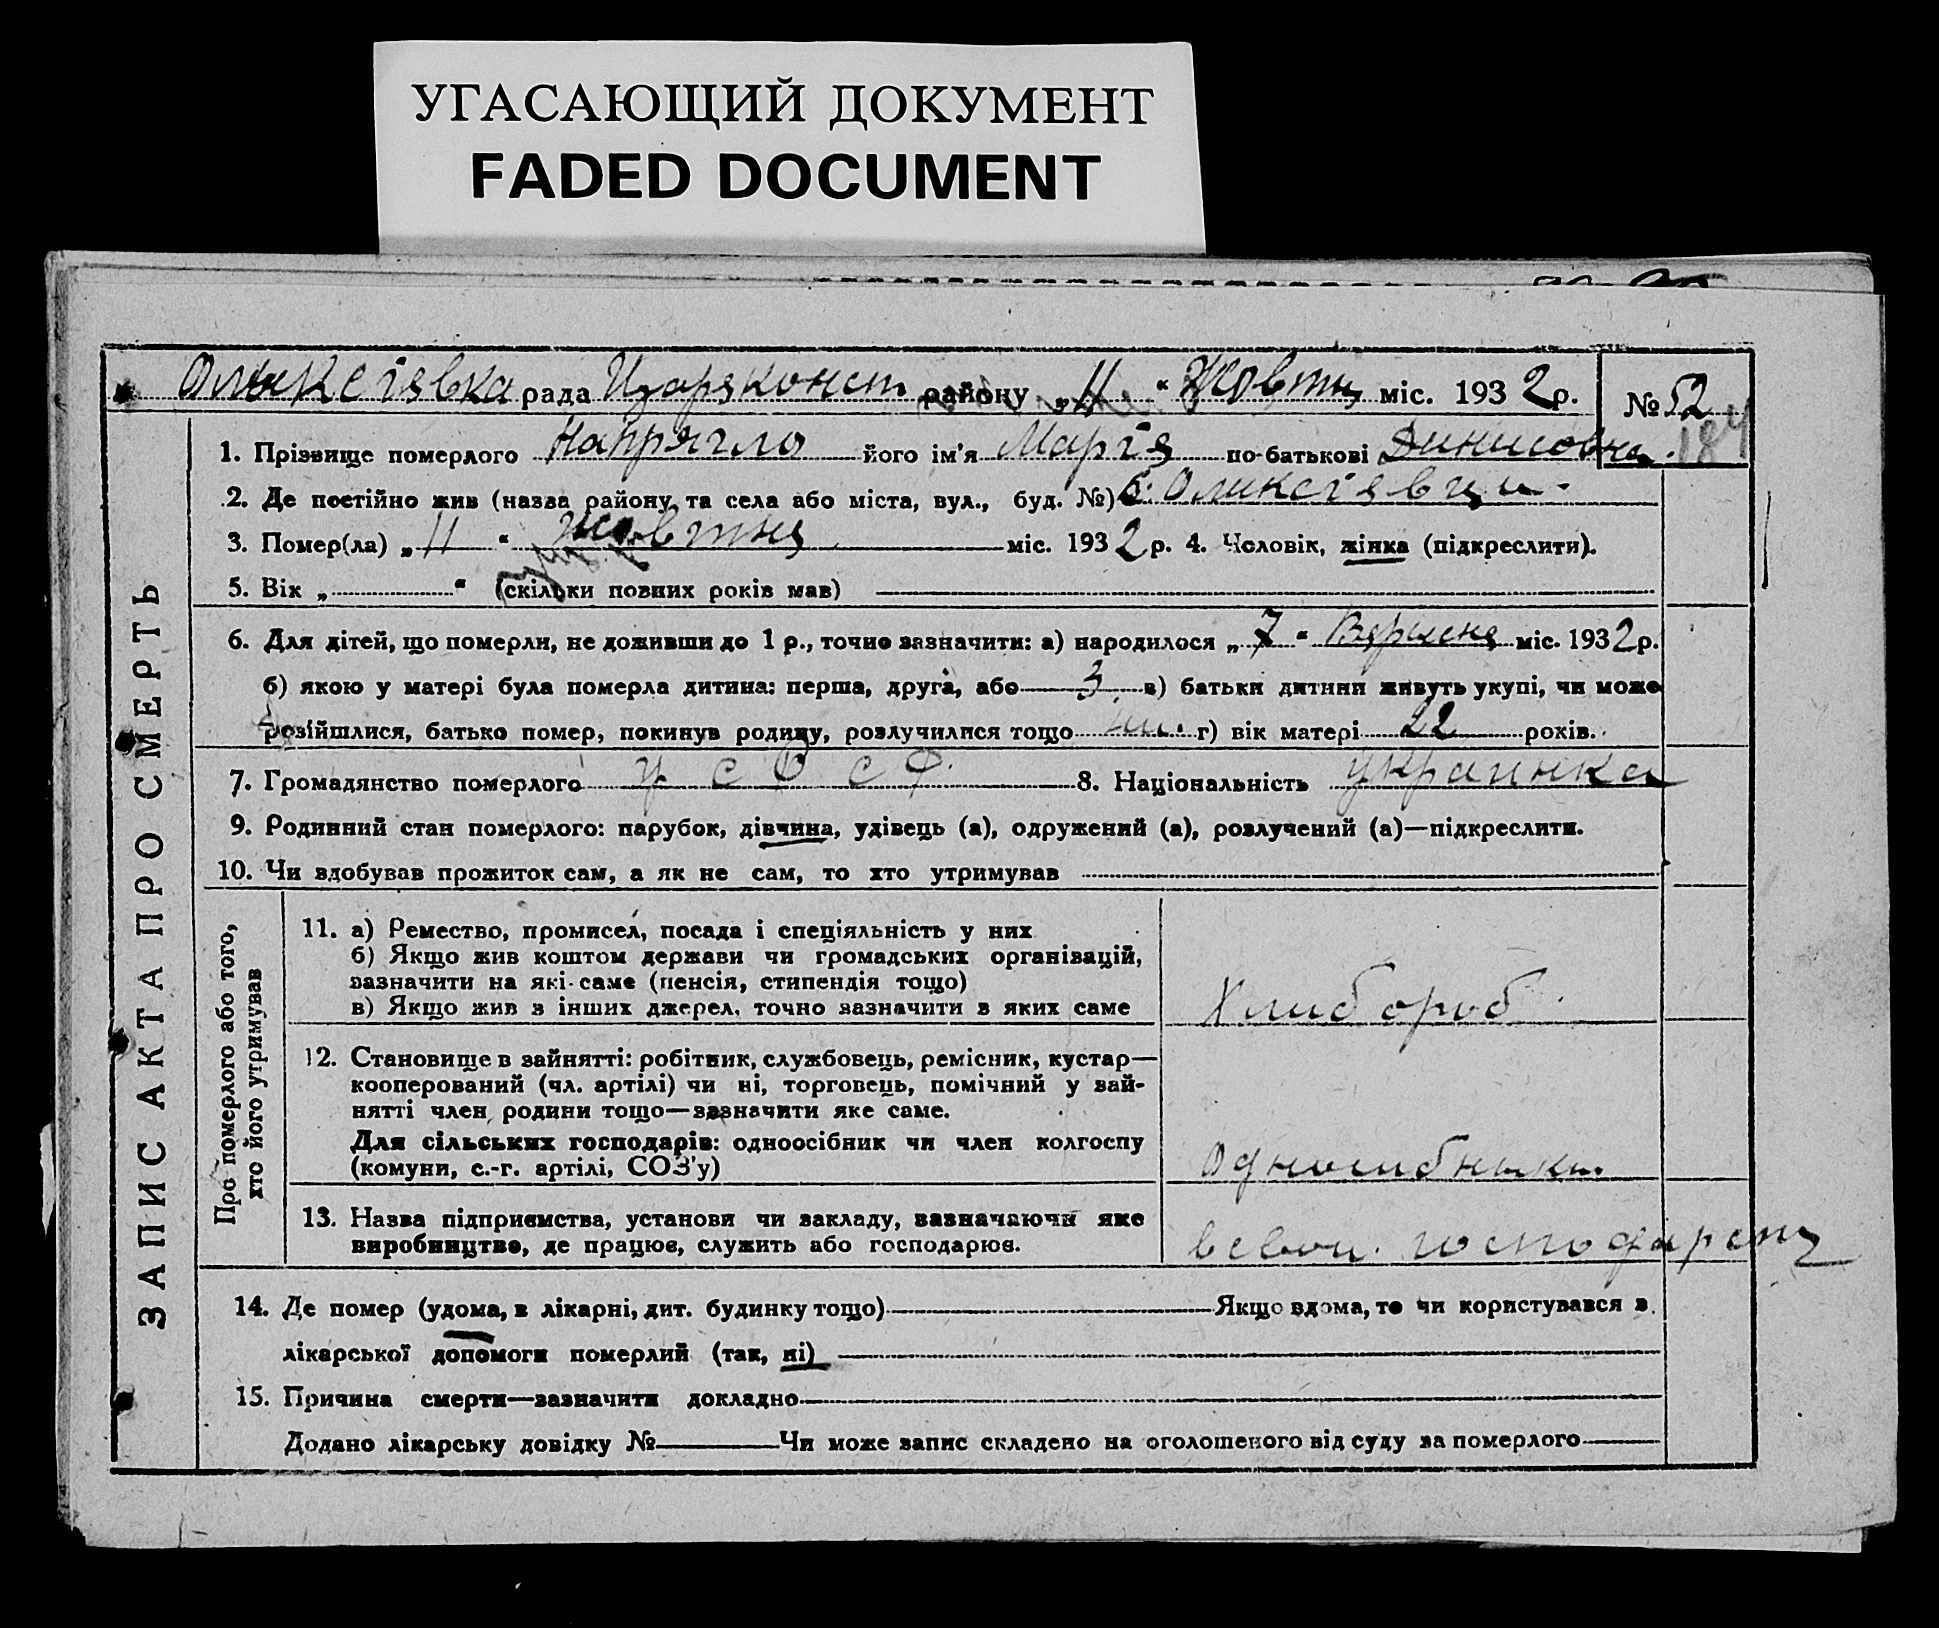 УГАСАЮЩИЙ ДОКУМЕНТ
FADED DOCUMENT
Олексіявка рада Царяконст району „11“ Жовтня міс. 1932 р. № 52
184
ЗАПИС АКТА ПРО СМЕРТЬ
1. Прізвище померлого Напрягло його ім'я Марія по-батькові Динисовна
2. Де постійно жив (назва району та села або міста, вул., буд. №) с. Оликсіявци
3. Помер(ла) „11“ Жовтня міс. 1932 р. 4. Чоловік, жінка (підкреслити).
5. Вік „ “ (скільки повних років мав)
6. Для дітей, що померли, не доживши до 1 р., точно зазначити: а) народилося „7“ Вярисня міс. 1932 р.
б) якою у матері була померла дитина: перша, друга, або 3 в) батьки дитини живуть укупі, чи може
розійшлися, батько помер, покинув родину, розлучилися тощо г) вік матері 22 років.
7. Громадянство померлого УСРСР 8. Національність украинка
9. Родинний стан померлого: парубок, дівчина, удівець (а), одружений (а), розлучений (а)—підкреслити.
10. Чи здобував прожиток сам, а як не сам, то хто утримував
Про померлого або того,
хто його утримував
11. а) Ремество, промисел, посада і спеціяльність у них
б) Якщо жив коштом держави чи громадських організацій,
зазначити на які-саме (пенсія, стипендія тощо)
в) Якщо жив з інших джерел, точно зазначити в яких саме
Хлибороб
12. Становище в зайнятті: робітник, службовець, ремісник, кустар—
кооперований (чл. артілі) чи ні, торговець, помічний у зай-
нятті член родини тощо—зазначити яке саме.
Для сільських господарів: одноосібник чи член колгоспу
(комуни, с.-г. артілі, СОЗ'у)
13. Назва підприємства, установи чи закладу, зазначаючи яке
виробництво, де працює, служить або господарює.
14. Де помер (удома, в лікарні, дит. будинку тощо) Якщо вдома, то чи користувався з
лікарської допомоги померлий (так, ні)
15. Причина смерти—зазначити докладно
Додано лікарську довідку № Чи може запис складено на оголошеного від суду за померлого